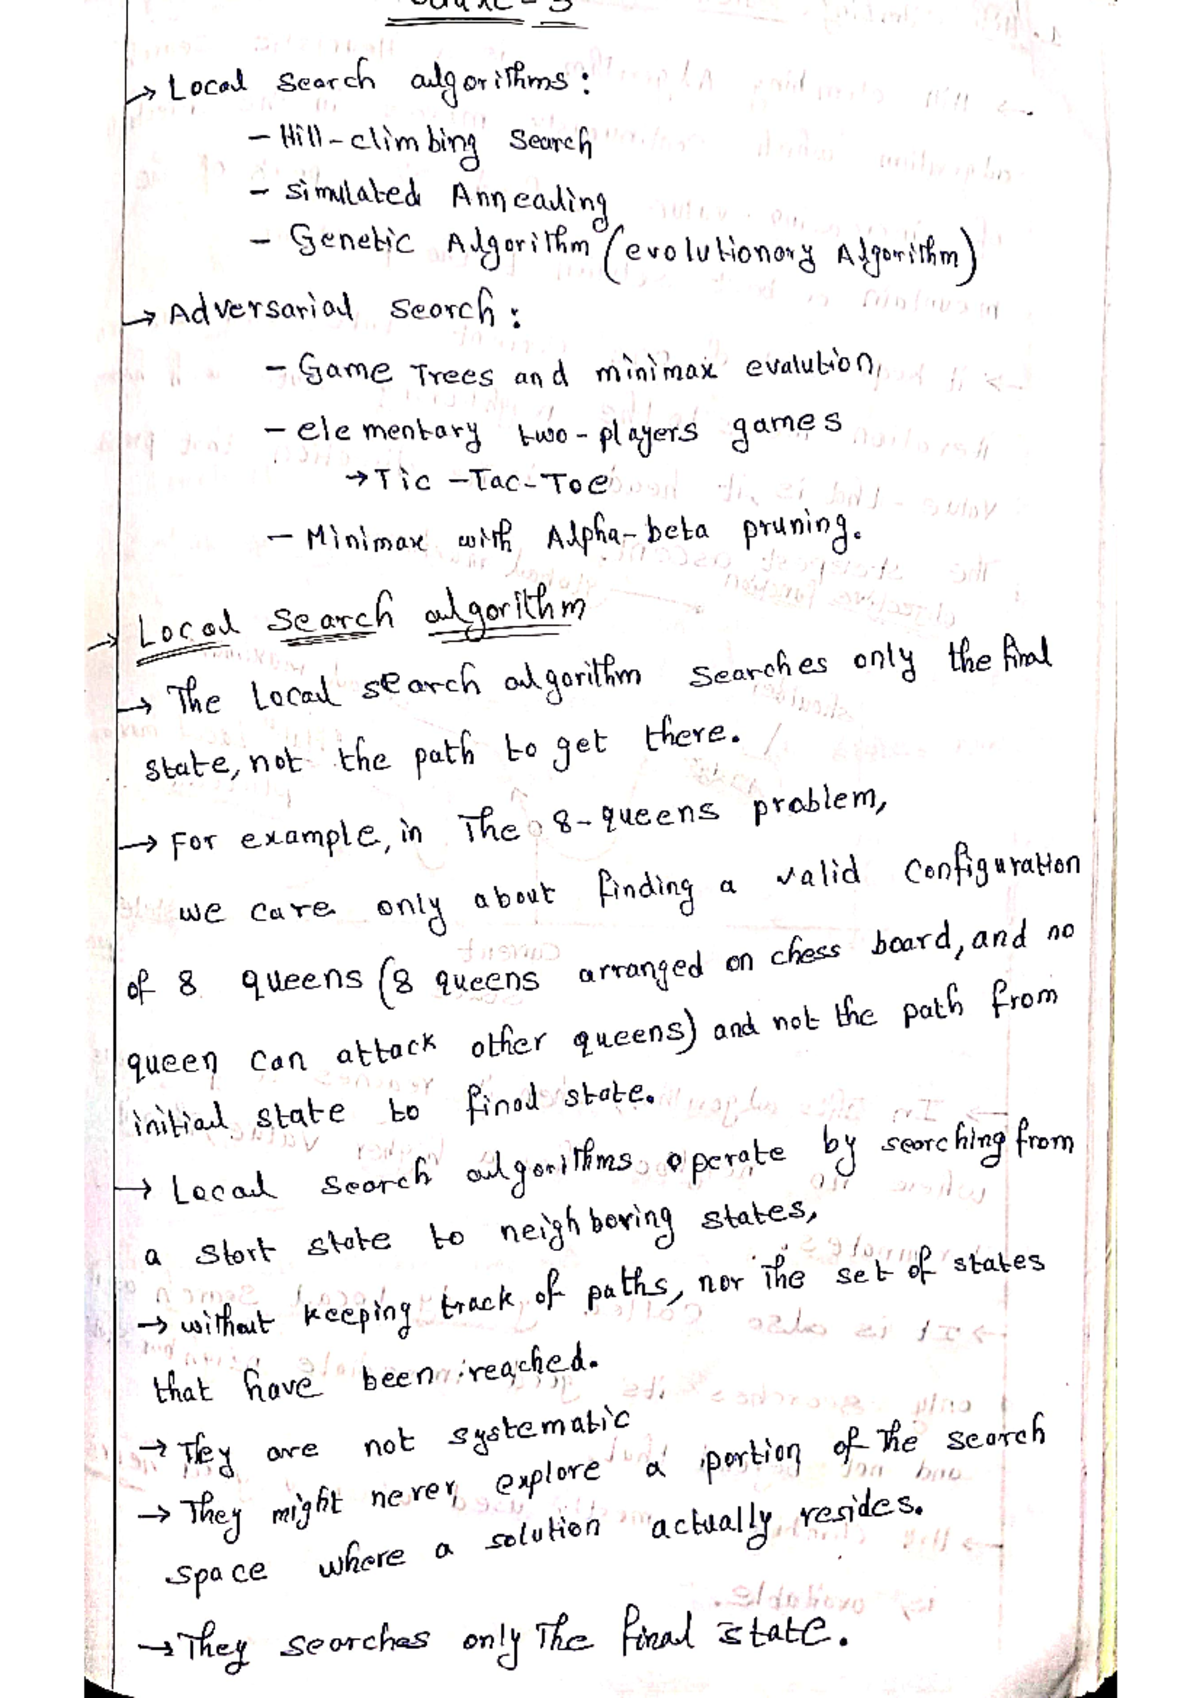 → Local Search algorithms:
- Hill-climbing Search
- simulated Annealing
- Genetic Algorithm (evolutionary Algorithm)
→ Adversarial Search:
- Game Trees and minimax evalution
- elementary two-players games
→ Tic-Tac-Toe
- Minimax with Alpha-beta pruning.
→ Local Search algorithm
→ The Local search algorithm searches only the final
state, not the path to get there.
→ For example, in The 8-queens problem,
we care only about finding a valid configuration
of 8 queens (8 queens arranged on chess board, and no
queen can attack other queens) and not the path from
initial state to final state.
→ Local search algorithms operate by searching from
a start state to neighboring states,
→ without keeping track of paths, nor The set of states
that have been reached.
→ They are not systematic
→ They might never explore a portion of The search
space where a solution actually resides.
→ They searches only The final state.